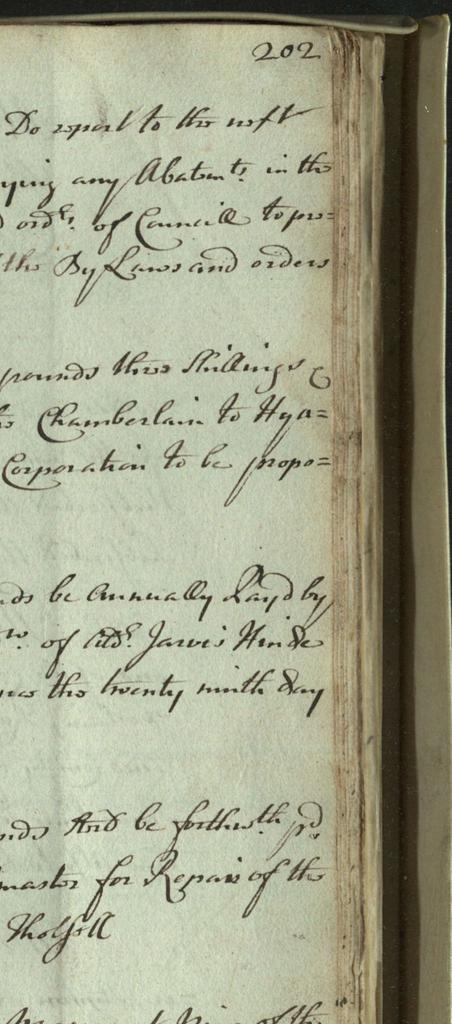 202
Do report to the next
ying any Abatem.ts in the
ord.rs of Councill to pro=
the By Laws and orders
pounds three Shillings &
Chamberlain to Hya=
Corporation to be propo=
ds be Annually Payd by
w. of Ald.r Jarvis Hinde
the twenty ninth day
nds And be forthw.th p.d
master for Repair of the
Tholsell
of the